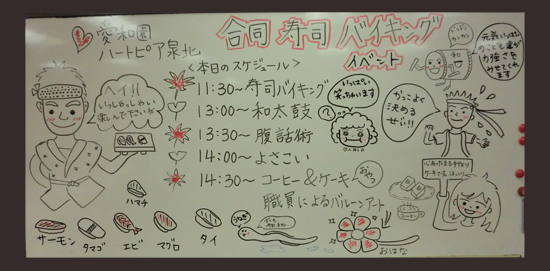 愛和園
ハートピア泉北
合同 寿司 バイキング
イベント
<本日のスケジュール>
11:30〜寿司バイキング
13:00〜和太鼓
13:30〜腹話術
14:00〜よさこい
14:30〜コーヒー&ケーキ
おやつ
職員によるバルーンアート
ヘイ!!
いらしゃしゃい
楽しんで下さいな
いっぱい
笑っちゃいます
かっこよく
決める
ぜい!!
元気いっぱい
力強さを
みせてくれ
ます
ハマチ
サーモン
タマゴ
エビ
マグロ
タイ
うなぎ
おはな